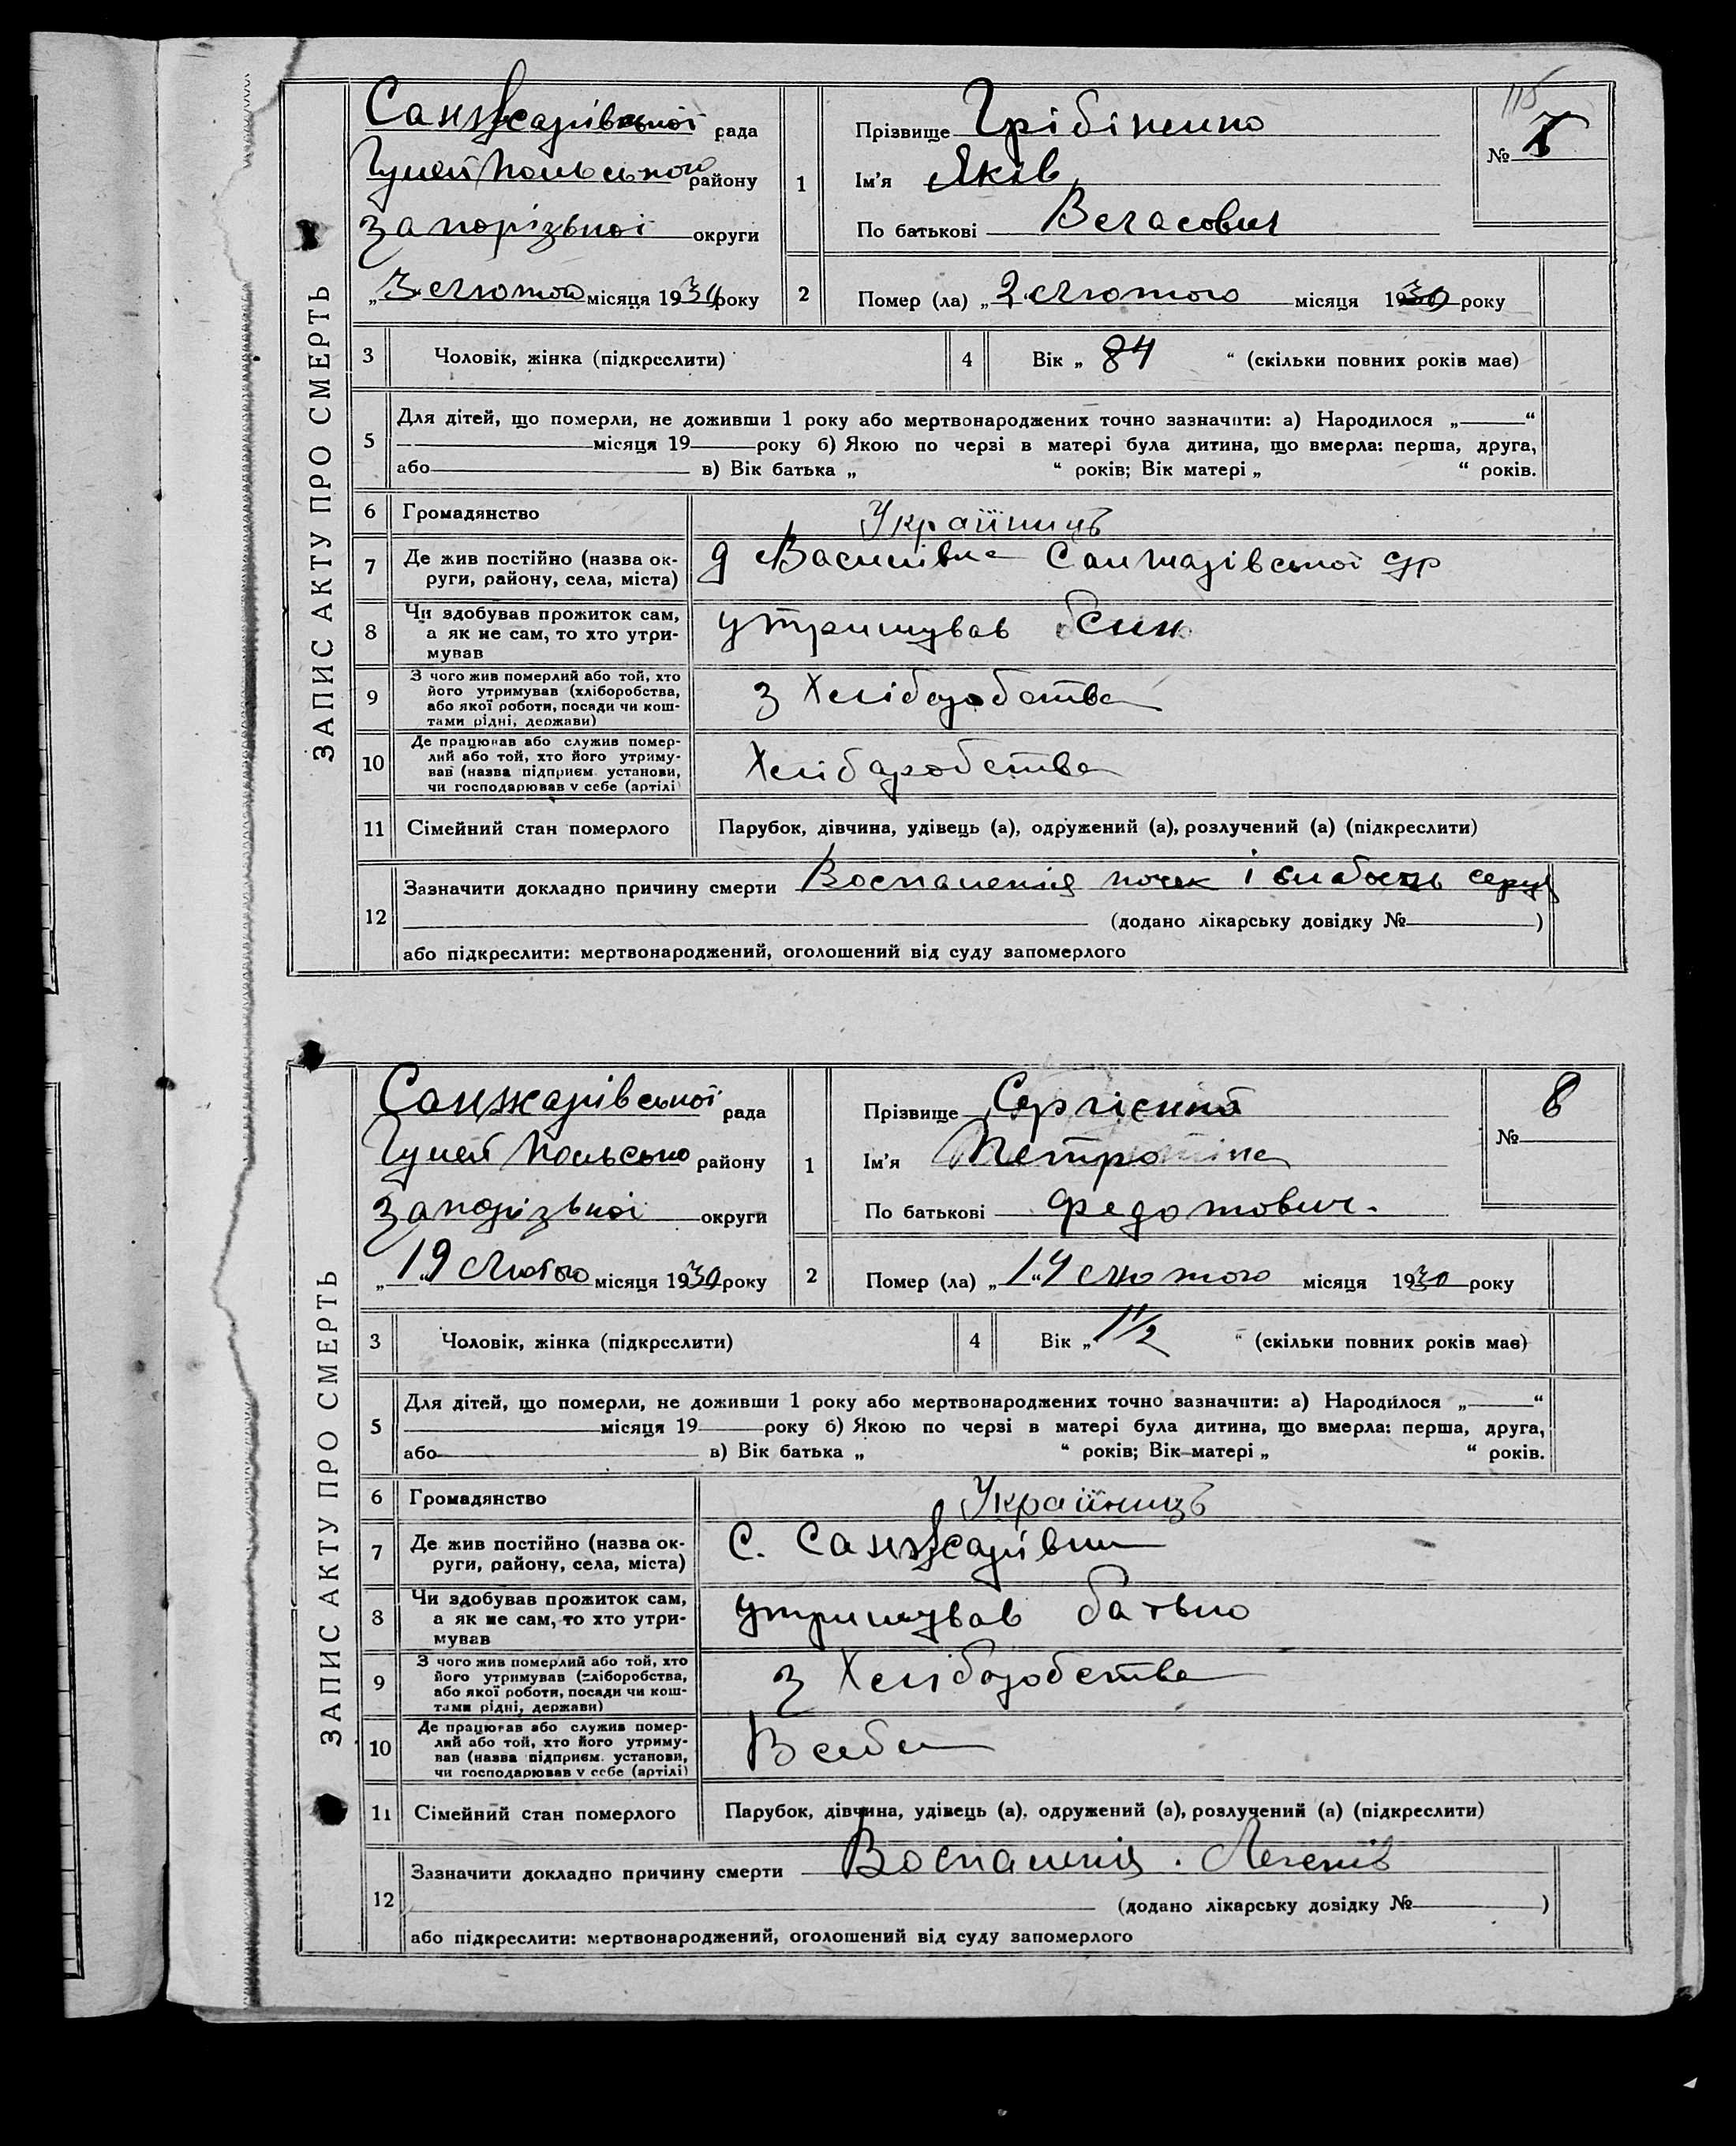 115
ЗАПИС АКТУ ПРО СМЕРТЬ
Санжарівської рада
Гуляйпольського району
Запорізької округи
„3“ лютого місяця 1930 року
1
Прізвище Грібіненко
Ім'я Яків
По батькові Власович
№ 7
2
Помер (ла) „2“ лютого місяця 1930 року
3 Чоловік, жінка (підкреслити)
4 Вік „ 84 “ (скільки повних років має)
5
Для дітей, що померли, не доживши 1 року або мертвонароджених точно зазначити: а) Народилося „ “
місяця 19 року б) Якою по черзі в матері була дитина, що вмерла: перша, друга,
або в) Вік батька „ “ років; Вік матері „ “ років.
6 Громадянство Українець
7 Де жив постійно (назва ок-
руги, району, села, міста)
Василівка Санжарівської с/р
8 Чи здобував прожиток сам,
а як не сам, то хто утри-
мував
утримував син
9 З чого жив померлий або той, хто
його утримував (хліборобства,
або якої роботи, посади чи кош-
тами рідні, держави)
з Хліборобства
10 Де працював або служив помер-
лий або той, хто його утриму-
вав (назва підприєм. установи,
чи господарював у себе (артілі)
Хліборобства
11 Сімейний стан померлого Парубок, дівчина, удівець (а), одружений (а), розлучений (а) (підкреслити)
12
Зазначити докладно причину смерти Воспаленія почек і слабость серця
(додано лікарську довідку № )
або підкреслити: мертвонароджений, оголошений від суду запомерлого
ЗАПИС АКТУ ПРО СМЕРТЬ
Санжарівської рада
Гуляйпольсько району
Запорізької округи
„19“ лютого місяця 1930 року
1
Прізвище Сергієнко
Ім'я
По батькові Федотович.
№ 8
2
Помер (ла) „14“ лютого місяця 1930 року
3 Чоловік, жінка (підкреслити)
4 Вік „ 1 1/2 “ (скільки повних років має)
5
Для дітей, що померли, не доживши 1 року або мертвонароджених точно зазначити: а) Народилося „ “
місяця 19 року б) Якою по черзі в матері була дитина, що вмерла: перша, друга,
або в) Вік батька „ “ років; Вік матері „ “ років.
6 Громадянство Українець
7 Де жив постійно (назва ок-
руги, району, села, міста)
С. Санжарівки
8 Чи здобував прожиток сам,
а як не сам, то хто утри-
мував
утримував батько
9 З чого жив померлий або той, хто
його утримував (хліборобства,
або якої роботи, посади чи кош-
тами рідні, держави)
з Хліборобства
10 Де працював або служив помер-
лий або той, хто його утриму-
вав (назва підприєм. установи,
чи господарював у себе (артілі)
В себе
11 Сімейний стан померлого Парубок, дівчина, удівець (а), одружений (а), розлучений (а) (підкреслити)
12
Зазначити докладно причину смерти Воспаленія. Легенів
(додано лікарську довідку № )
або підкреслити: мертвонароджений, оголошений від суду запомерлого